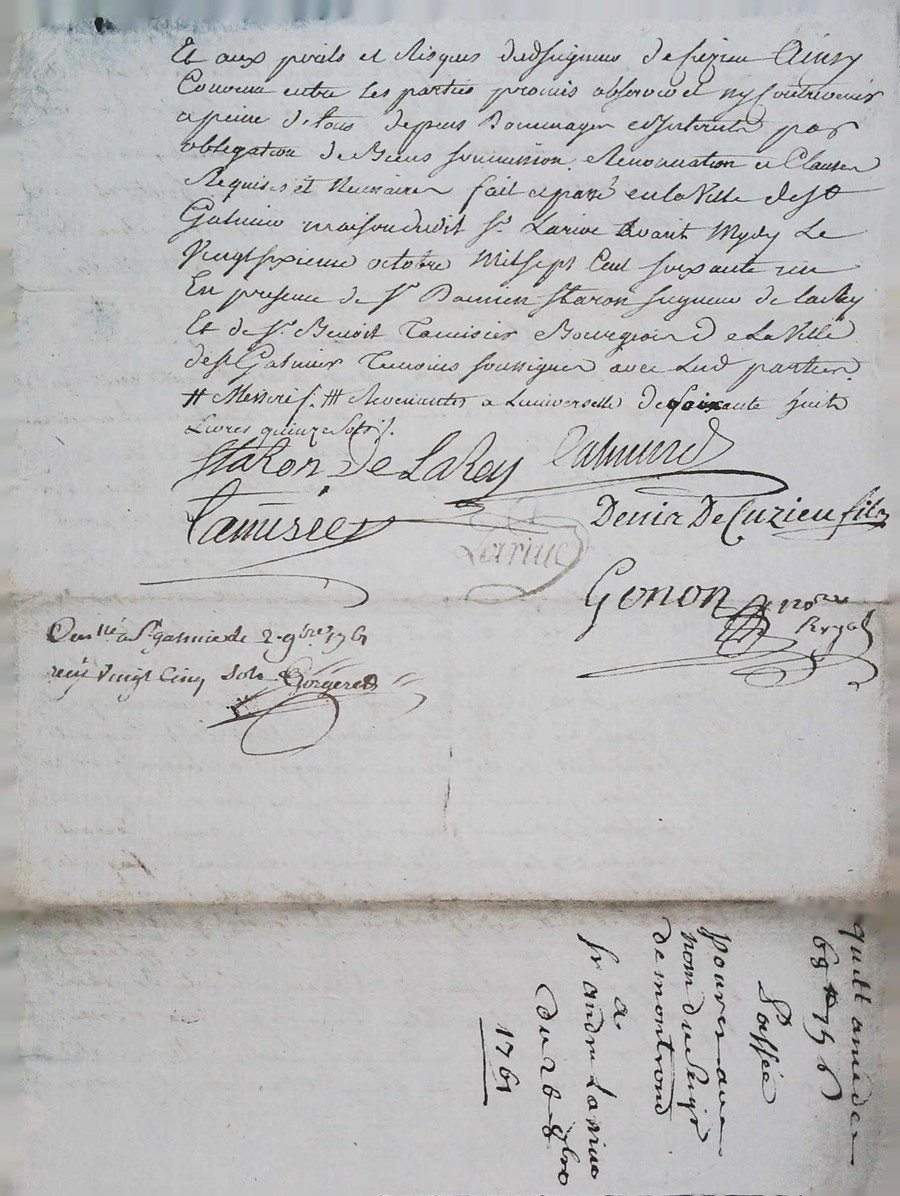 Et aux perils et Risques dudseigneur de Cuzieu Ainsy
Convenu entre les parties promis observer et ny Contrevenir
a peine de tous depens Dommages et Interets par
obligation de Biens soumission Renonciation et Clauses
Requises et Necessaires fait et passé en la Ville de St
Galmier maison dudit Sr. Larive Avant Mydy Le
Vingt sixieme octobre Mil sept Cent soixante un
En presence de Sr Damien Staron seigneur de LaRey
Et de Sr. Benoit Tamisier Bourgeois de La Ville
de St Galmier Temoins soussignes avec Lesd parties.
# Messire /. ### Revenantes a Luniverselle de soixante huit
Livres quinze Sols /.
Staron De LaRey
Tamisier
Larive
Denis De Cuzieu fils
Gonon nore Royal
Con.lé à St. galmier le 2. 9bre 1761
reçu Vingt Cinq Sols Gorgeret
quitt
68 # 15 s
Passée
de montrond
a
Sr andre Larive
Du 26 8bre
1761